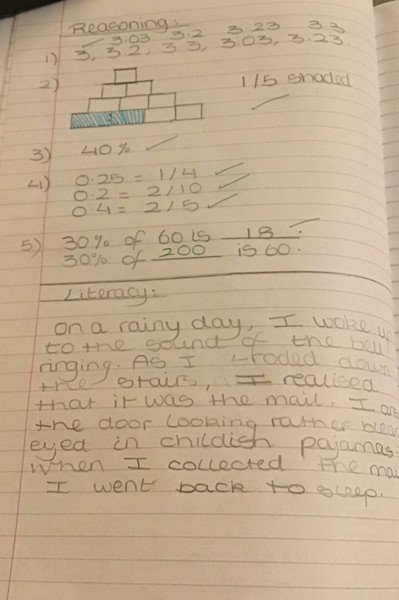 Reasoning:
3.03 3.2 3.23 3.3
1) 3, 3.2, 3.3, 3.03, 3.23.
2) 1/5 shaded
3) 40%
4) 0.25 = 1/4
0.2 = 2/10
0.4 = 2/5
5) 30% of 60 is 18.
30% of 200 is 60.
Literacy:
on a rainy day, I woke up
to the sound of the bell
ringing. As I troded down
the stairs, I realised
that it was the mail. I
the door looking rather
eyed in childish pajamas.
When I collected the
I went back to sleep.